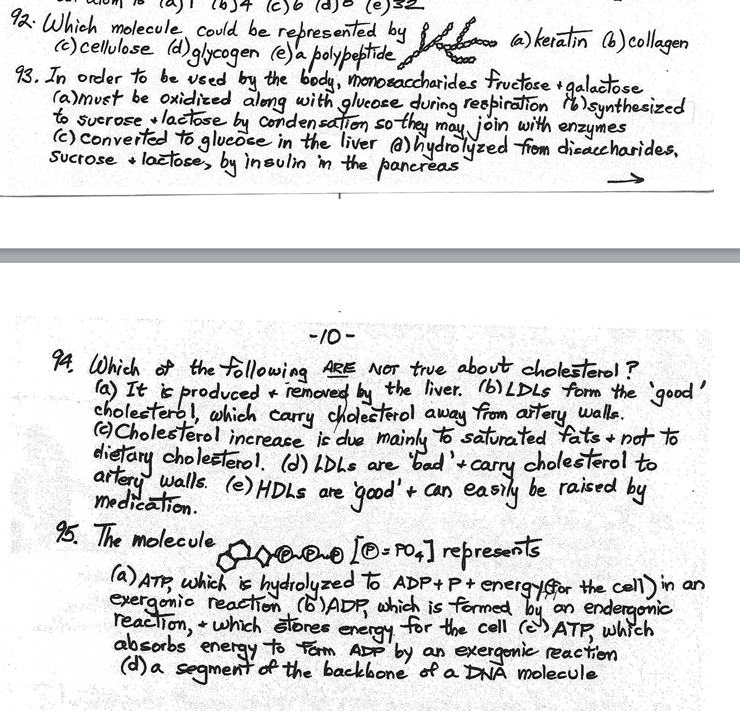 (b)4 (c)6 (d)8 (e)32
92. Which molecule could be represented by (a) keratin (b) collagen
(c) cellulose (d) glycogen (e) a polypeptide
93. In order to be used by the body, monosaccharides fructose + galactose
(a) must be oxidized along with glucose during respiration (b) synthesized
to sucrose + lactose by condensation so they may join with enzymes
(c) converted to glucose in the liver (d) hydrolyzed from disaccharides,
sucrose + lactose, by insulin in the pancreas
→
-10-
94. Which of the following ARE NOT true about cholesterol?
(a) It is produced + removed by the liver. (b) LDLs form the 'good'
cholesterol, which carry cholesterol away from artery walls.
(c) Cholesterol increase is due mainly to saturated fats + not to
dietary cholesterol. (d) LDLs are 'bad' + carry cholesterol to
artery walls. (e) HDLs are 'good' + can easily be raised by
medication.
95. The molecule P P P [P = PO4] represents
(a) ATP, which is hydrolyzed to ADP + P + energy (for the cell) in an
exergonic reaction (b) ADP, which is formed by an endergonic
reaction, + which stores energy for the cell (c) ATP, which
absorbs energy to form ADP by an exergonic reaction
(d) a segment of the backbone of a DNA molecule